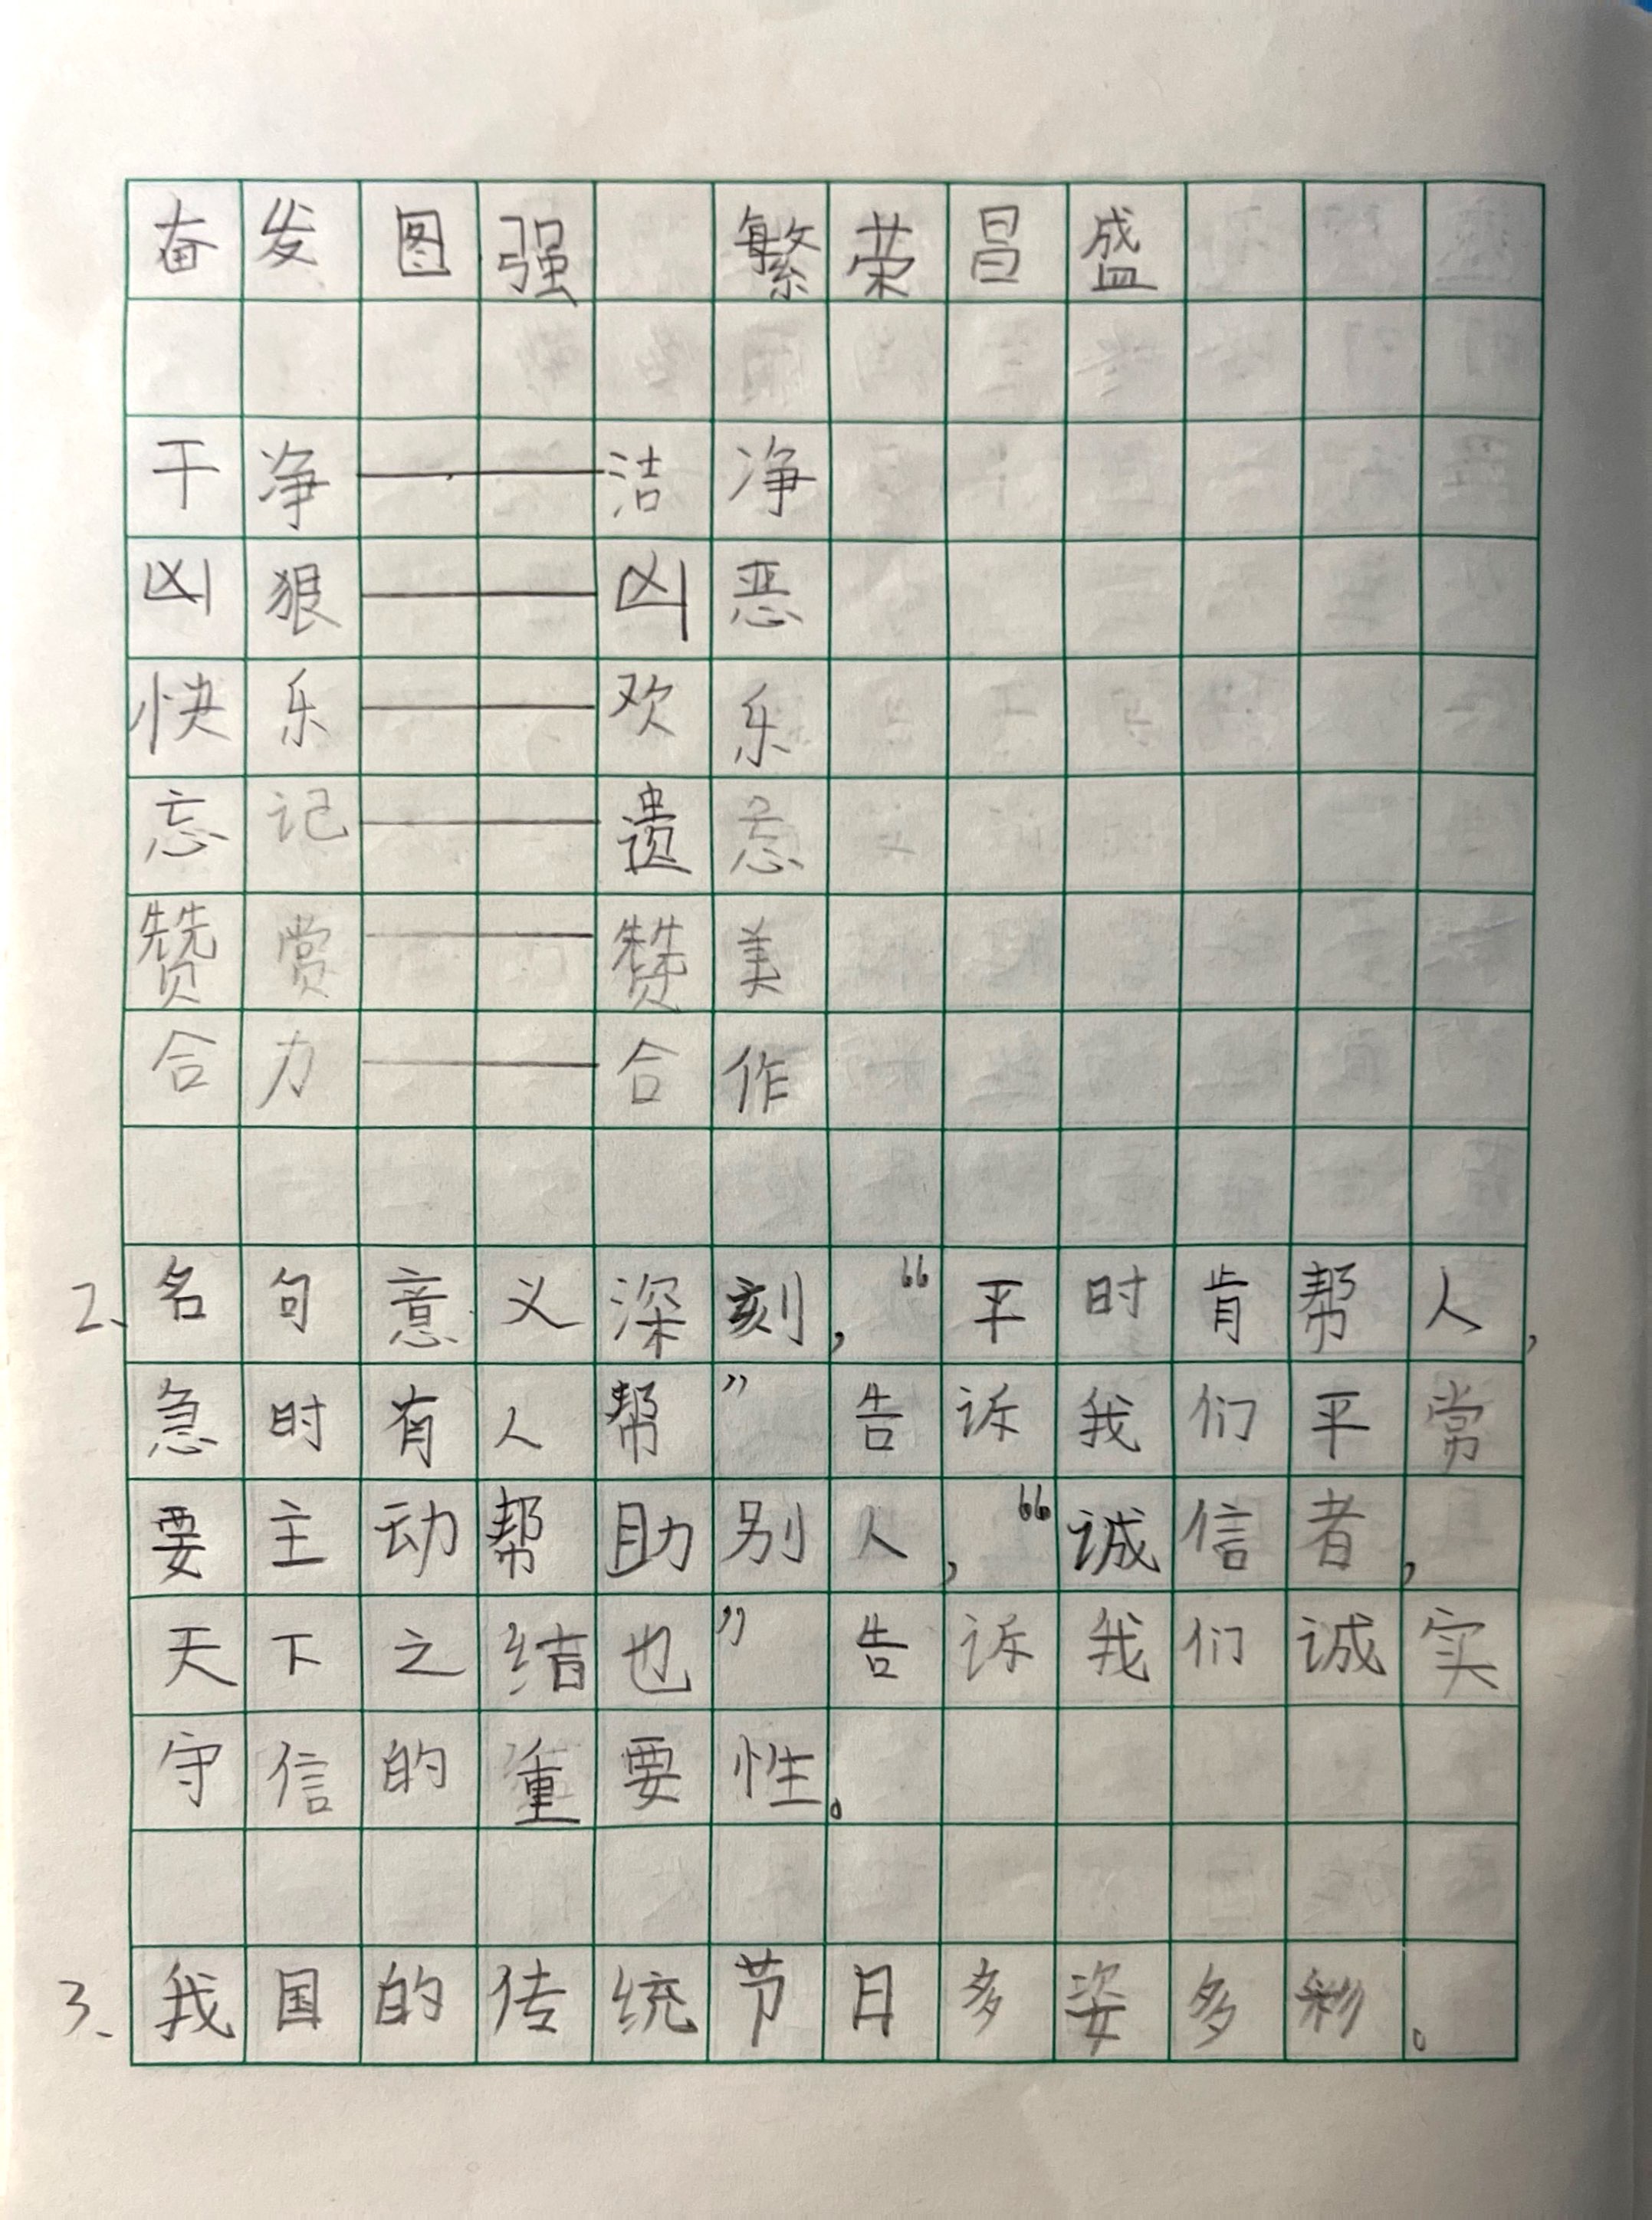 奋发图强 繁荣昌盛
干净——洁净
凶狠——凶恶
快乐——欢乐
忘记——遗忘
赞赏——赞美
合力——合作
2、名句意义深刻，“平时肯帮人，
急时有人帮”告诉我们平常
要主动帮助别人，“诚信者，
天下之结也”告诉我们诚实
守信的重要性。
3、我国的传统节日多姿多彩。